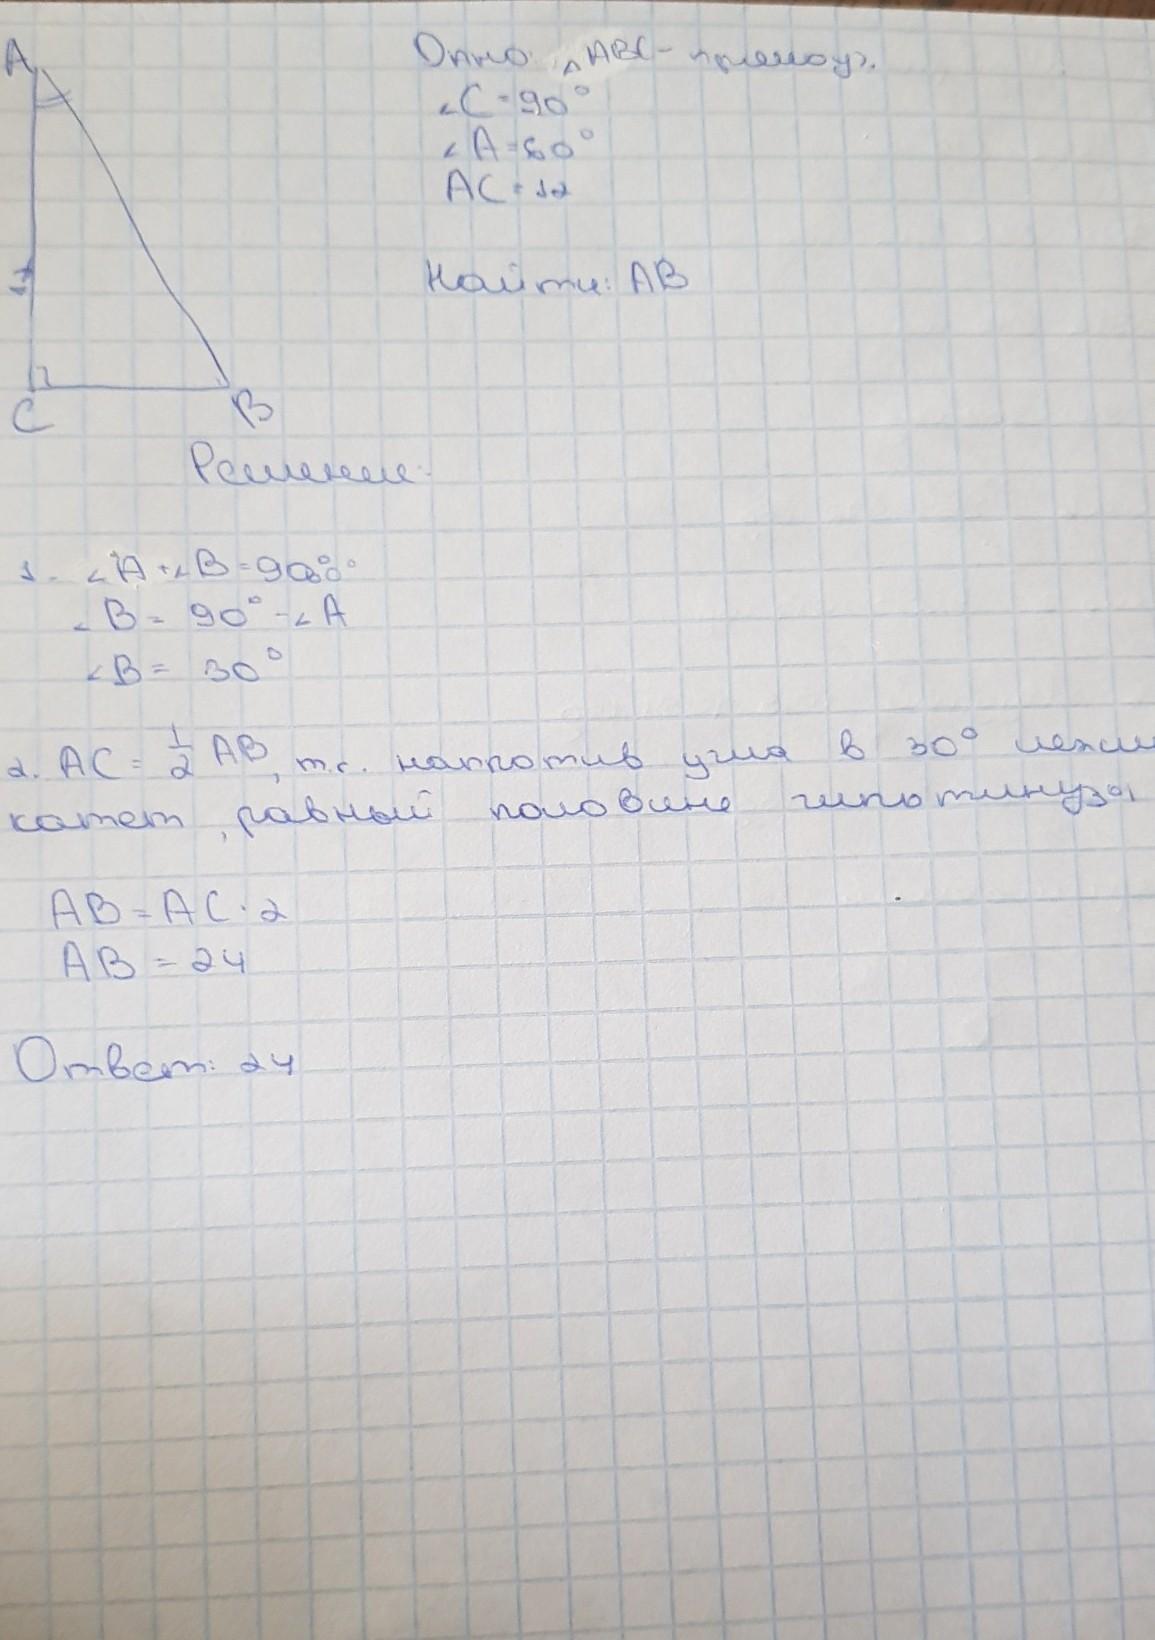 A
Дано: △ABC - прямоуг.
∠C = 90°
∠A = 60°
AC = 12
Найти: AB
C
B
Решение:
1. ∠A + ∠B = 90°
∠B = 90° - ∠A
∠B = 30°
2. AC = 1/2 AB, т.с. напротив угла в 30° лежи
катет, равный половине гипотинузы
AB = AC · 2
AB = 24
Ответ: 24